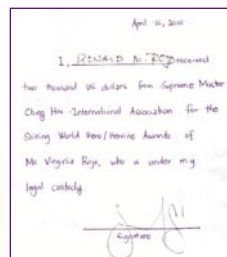 April 16, 2010
I, RONALD M. received
two thousand US dollars from Supreme Master
Ching Hai International Association for the
Shining World Hero/Heroine Awards of
Ms. Virginia Rojo, who is under my
legal custody.
Signature